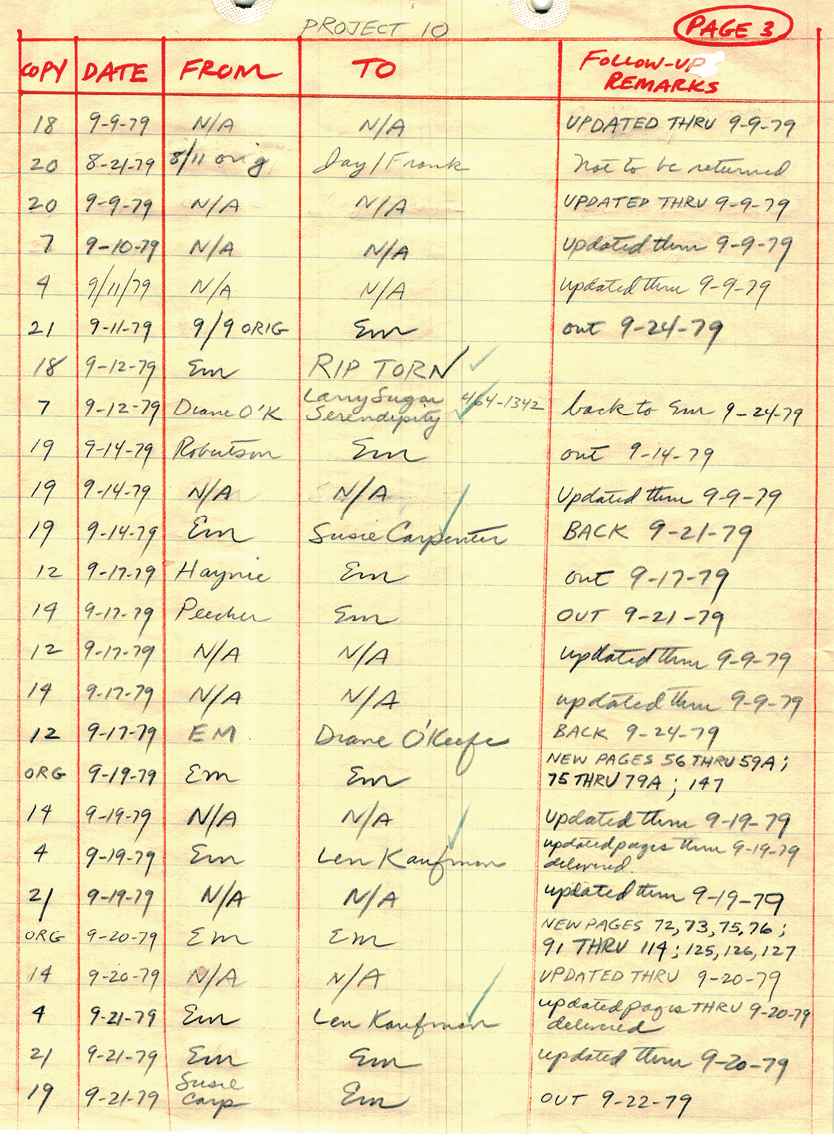 PROJECT 10 PAGE 3
COPY DATE FROM TO FOLLOW-UP
REMARKS
18 9-9-79 N/A N/A UPDATED THRU 9-9-79
20 8-21-79 8/11 orig Jay/Frank Not to be returned
20 9-9-79 N/A N/A UPDATED THRU 9-9-79
7 9-10-79 N/A N/A updated thru 9-9-79
4 9/11/79 N/A N/A updated thru 9-9-79
21 9-11-79 9/9 ORIG Em out 9-24-79
18 9-12-79 Em RIP TORN ✓
7 9-12-79 Diane O'K Larry Sugar 464-1342 back to Em 9-24-79
Serendipity ✓
19 9-14-79 Robertson Em out 9-14-79
19 9-14-79 N/A N/A Updated thru 9-9-79
19 9-14-79 Em Susie Carpenter ✓ BACK 9-21-79
12 9-17-79 Haynie Em out 9-17-79
14 9-17-79 Peecher Em OUT 9-21-79
12 9-17-79 N/A N/A updated thru 9-9-79
14 9-17-79 N/A N/A updated thru 9-9-79
12 9-17-79 EM Diane O'Keefe BACK 9-24-79
ORG 9-19-79 Em Em NEW PAGES 56 THRU 59A;
75 THRU 79A; 147
14 9-19-79 N/A N/A updated thru 9-19-79
4 9-19-79 Em Len Kaufman ✓ updated pages thru 9-19-79
delivered
21 9-19-79 N/A N/A updated thru 9-19-79
ORG 9-20-79 Em Em NEW PAGES 72, 73, 75, 76;
91 THRU 114; 125, 126, 127
14 9-20-79 N/A N/A UPDATED THRU 9-20-79
4 9-21-79 Em Len Kaufman ✓ updated pages THRU 9-20-79
delivered
21 9-21-79 Em Em updated thru 9-20-79
19 9-21-79 Susie Em OUT 9-22-79
Carp